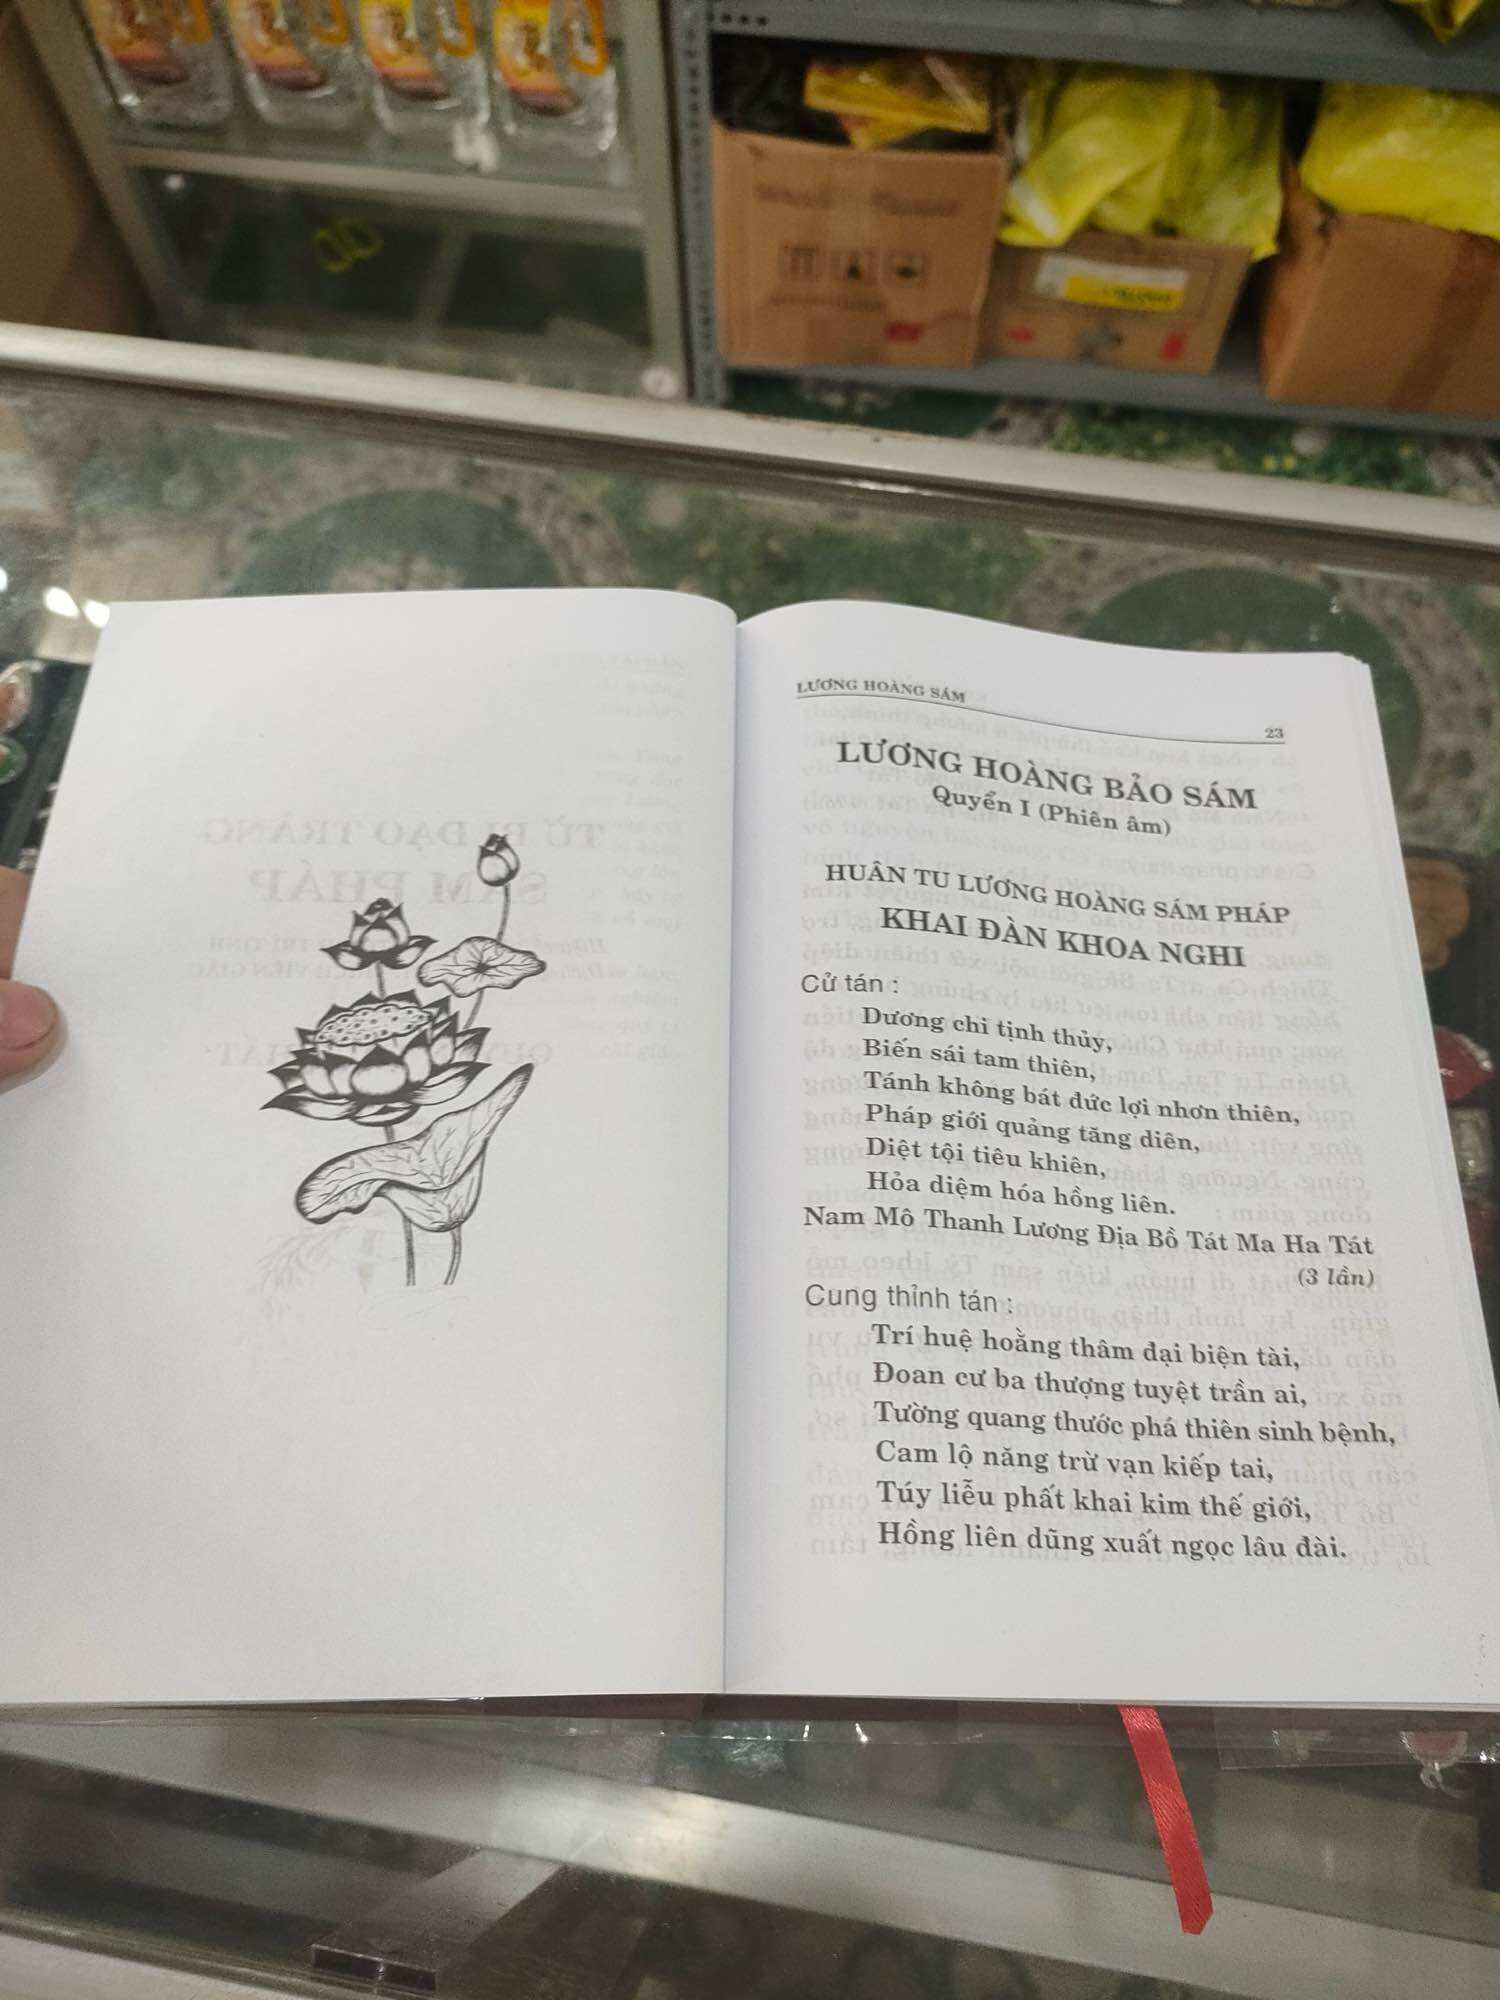 LƯƠNG HOÀNG SÁM
23
LƯƠNG HOÀNG BẢO SÁM
Quyển I (Phiên âm)
HUÂN TU LƯƠNG HOÀNG SÁM PHÁP
KHAI ĐÀN KHOA NGHI
Cử tán :
Dương chi tịnh thủy,
Biến sái tam thiên,
Tánh không bát đức lợi nhơn thiên,
Pháp giới quảng tăng diên,
Diệt tội tiêu khiên,
Hỏa diệm hóa hồng liên.
Nam Mô Thanh Lương Địa Bồ Tát Ma Ha Tát
(3 lần)
Cung thỉnh tán :
Trí huệ hoằng thâm đại biện tài,
Đoan cư ba thượng tuyệt trần ai,
Tường quang thước phá thiên sinh bệnh,
Cam lộ năng trừ vạn kiếp tai,
Túy liễu phất khai kim thế giới,
Hồng liên dũng xuất ngọc lâu đài.